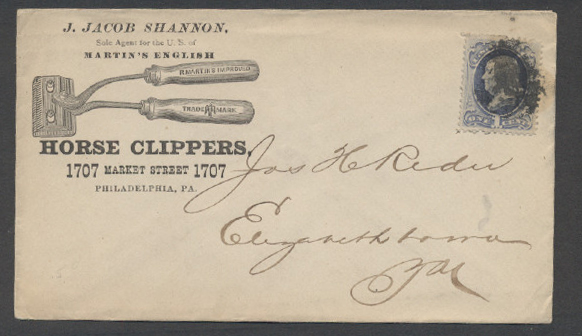 J. JACOB SHANNON,
Sole Agent for the U. S. of
MARTIN'S ENGLISH
P. MARTIN'S IMPROVED
TRADE MARK
HORSE CLIPPERS,
1707 MARKET STREET 1707
PHILADELPHIA, PA.
ONE CENT
Jas H Keder
Elizabethtown
Pa